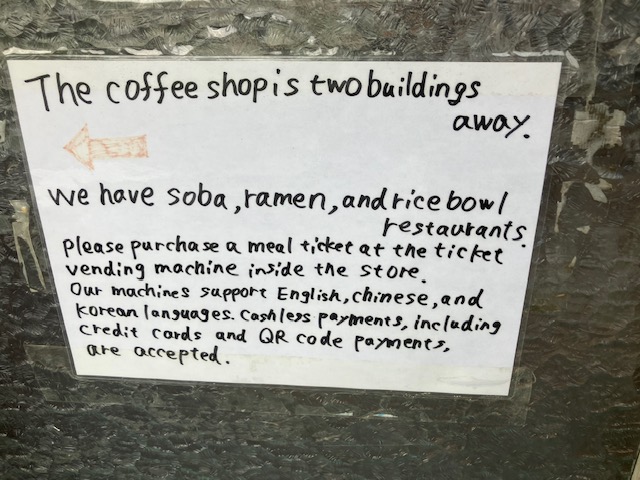 The coffee shop is two buildings
away.
We have soba, ramen, and rice bowl
restaurants.
Please purchase a meal ticket at the ticket
vending machine inside the store.
Our machines support English, chinese, and
korean languages. Cashless payments, including
credit cards and QR code payments,
are accepted.